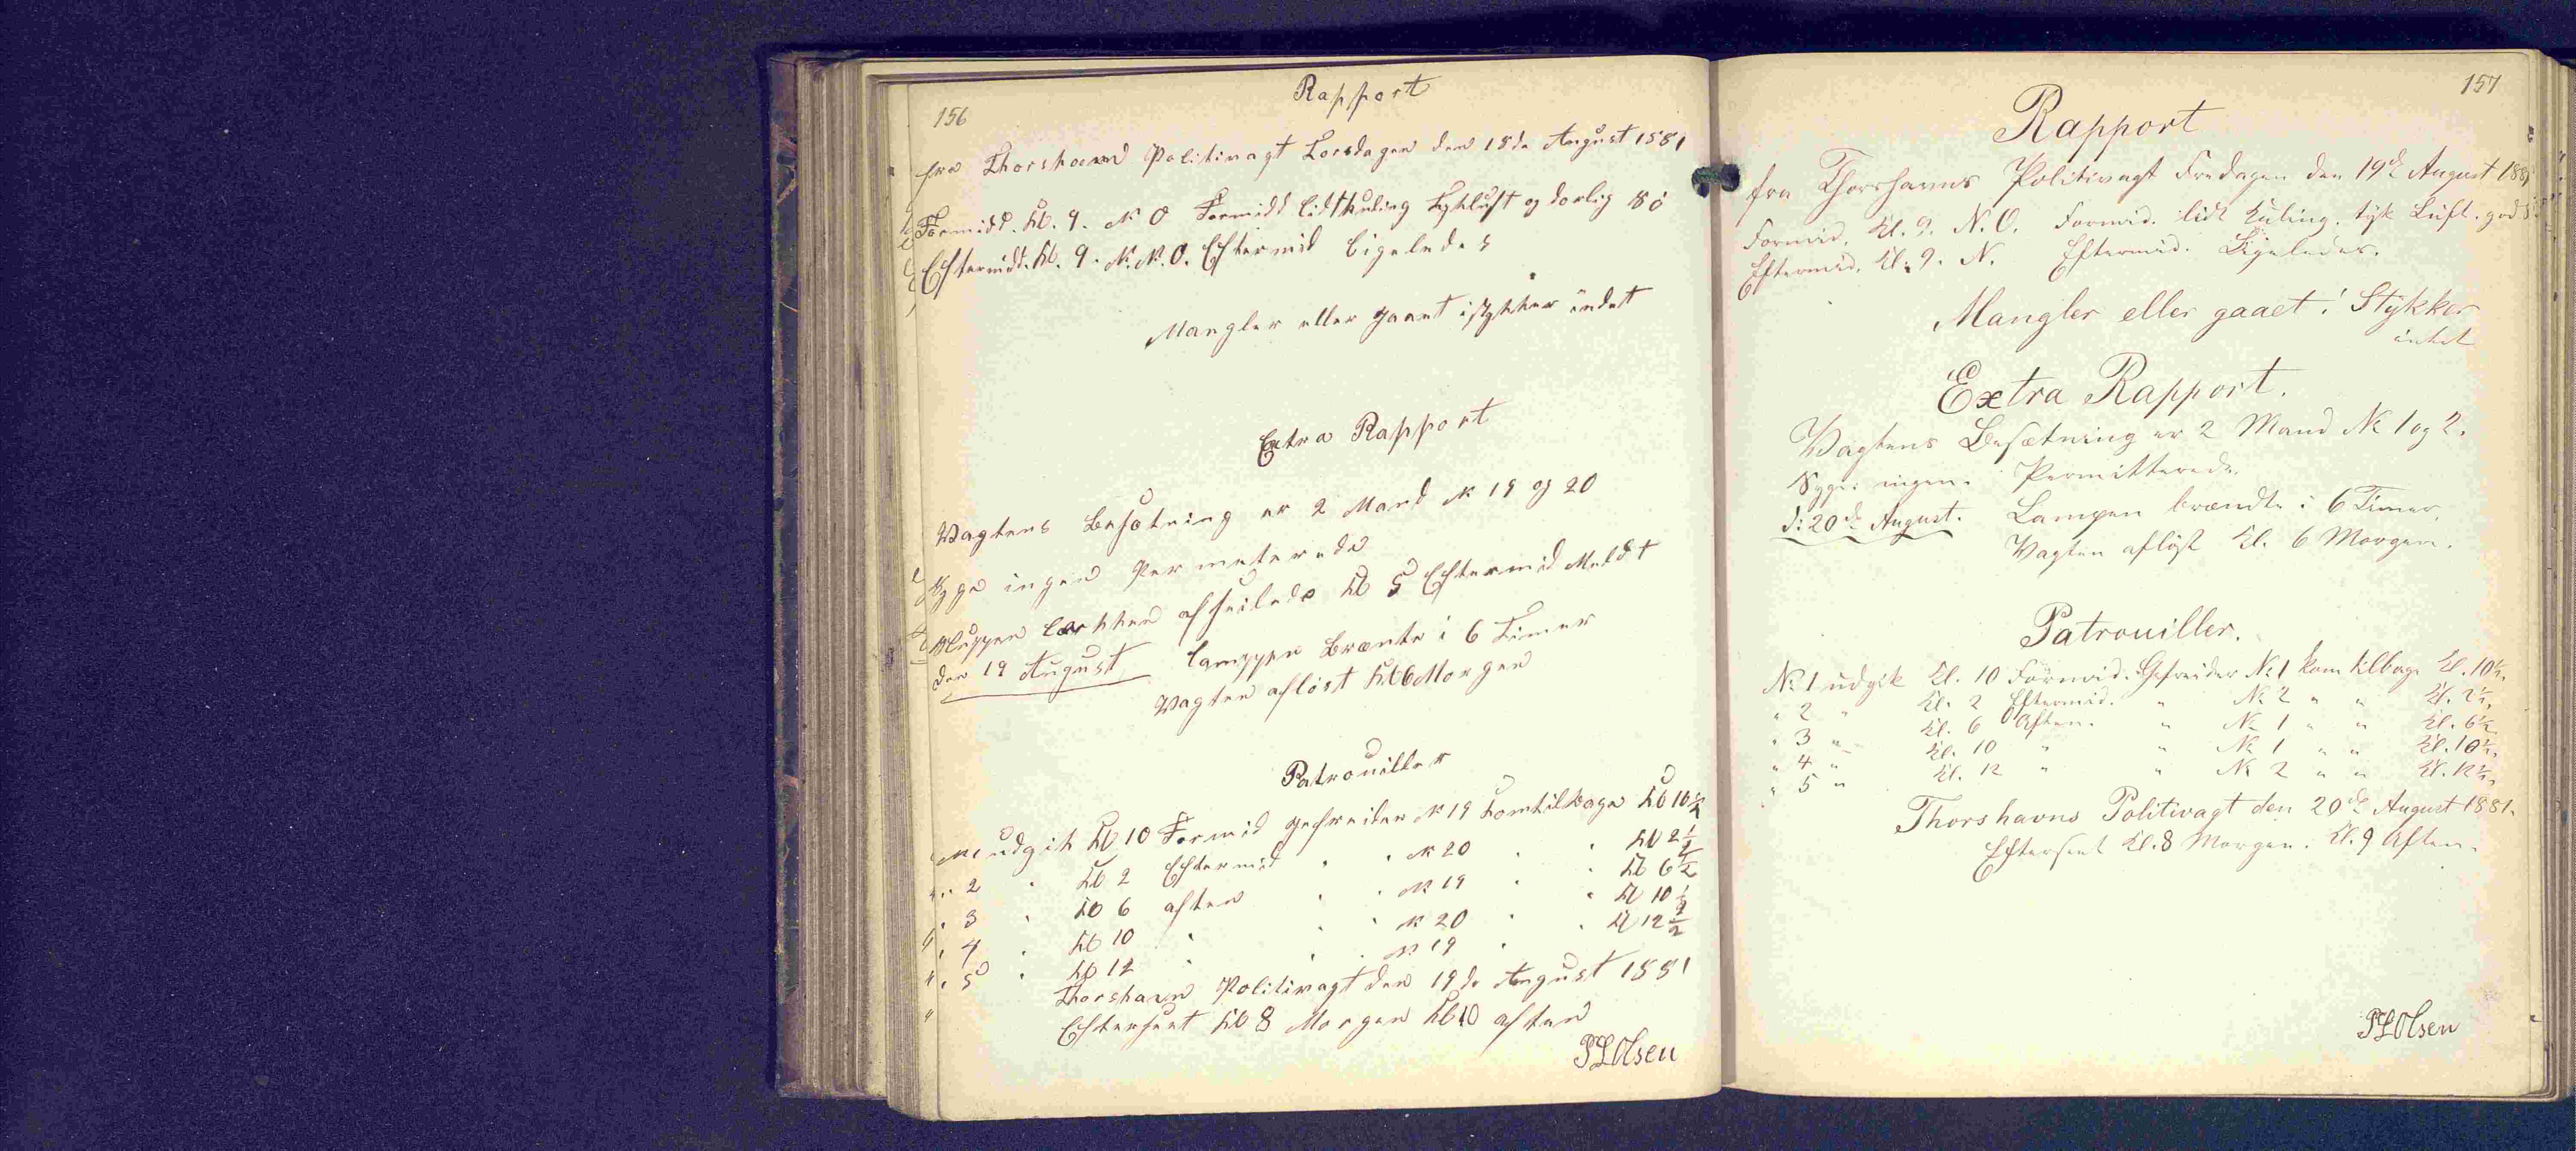 156
Rapport
fra Thorshavn Politivagt Torsdagen den 18de August 1881
Formidd. Kl. 9. N O Formidd lidt Kuling Tyk luft og dorlig 8 ó
Eftermidd. Kl. 9. N. N. O. Eftermid ligeledes
Mangler eller gaaet i stykker indet
Extra Rapport
Vagtens besøtning er 2 Mand N 19 og 20
Syge ingen Permeterede
Sluppen afseilede Kl 5 Eftermid Meldt
den 19 August lamppen Brænte i 6 Timer
Vagten afløst Kl 6 Morgen
Patrouiller
N 1 udgik Kl 10 Formid gefreider N 19 komtilbage Kl 10 1/2
" 2 " Kl 2 Eftermid " " N 20 " " Kl 2 1/2
" 3 " Kl 6 aften " " N 19 " " Kl 6 1/2
" 4 " Kl 10 " " " N 20 " " Kl 10 1/2
" 5 " Kl 12 " " " N 19 " " Kl 12 1/2
Thorshavn Politivagt den 19de August 1881
Efterseet Kl 8 Morgen Kl 10 aften
PLOlsen
157
Rapport
fra Thorshavns Politivagt Fredagen den 19de August 1881
Formid. Kl. 9. N. O. Formid. lidt Kuling. tyk Luft. god
Eftermid. Kl. 9. N. Eftermid. Ligeledes.
Mangler eller gaaet i Stykker
intet
Extra Rapport.
Vagtens Besætning er 2 Mand No 1 og 2.
Syge: ingen. Permitterede.
d: 20de August. Lampen brændte i 6 Timer.
Vagten afløst Kl. 6 Morgen.
Patrouiller.
No 1 udgik Kl. 10 Formid. Gefreider No 1 kom tilbage Kl. 10 1/2.
" 2 " Kl. 2 Eftermid. " No 2 " " Kl. 2 1/2.
" 3 " Kl. 6 Aften. " No 1 " " Kl. 6 1/2.
" 4 " Kl. 10 " " No 1 " " Kl. 10 1/2.
" 5 " Kl. 12 " " No 2 " " Kl. 12 1/2.
Thorshavns Politivagt den 20de August 1881.
Efterseet Kl. 8 Morgen. Kl. 9 Aften.
PLOlsen